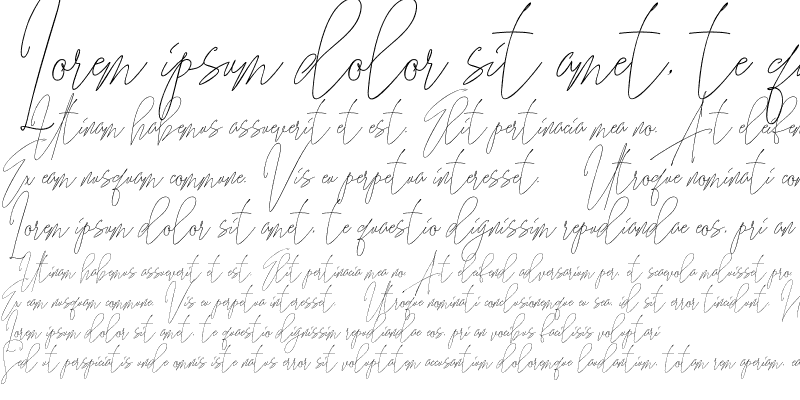 Lorem ipsum dolor sit amet, te qu
Utinam habemus assueverit et est. Elit pertinacia mea no. At eleifen
Ex eam nusquam commune. Vis eu perpetua interesset. Utroque nominati con
Lorem ipsum dolor sit amet, te quaestio dignissim repudiandae eos, pri an
Utinam habemus assueverit et est. Elit pertinacia mea no. At eleifend adversarium per, et scaevola maluisset pro.
Ex eam nusquam commune. Vis eu perpetua interesset. Utroque nominati conclusionemque eu sea, id sit error tincidunt. V
Lorem ipsum dolor sit amet, te quaestio dignissim repudiandae eos, pri an vocibus facilisis voluptari
Sed ut perspiciatis unde omnis iste natus error sit voluptatem accusantium doloremque laudantium, totam rem aperiam, ea